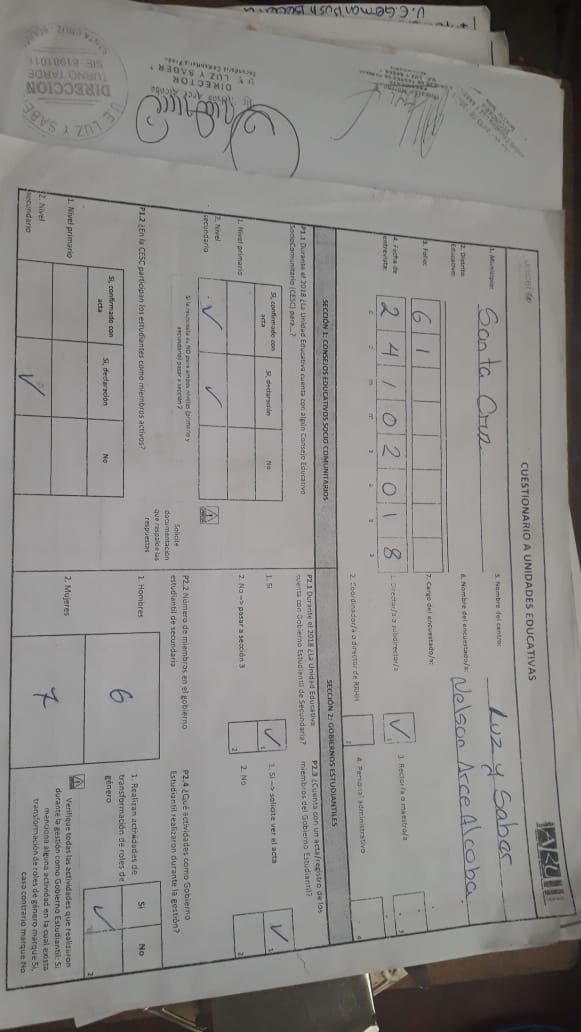 U.E German Bush
ARU
CUESTIONARIO A UNIDADES EDUCATIVAS
1. Municipio: Santa Cruz
2. Distrito Educativo:
3. Folio: 6 1
4. Fecha de entrevista: 2 4 1 0 2 0 1 8
5. Nombre del centro: Luz y Saber
6. Nombre del encuestado/a: Nelson Arce Alcoba
7. Cargo del encuestado/a:
1. Director/a o subdirector/a
2. Coordinador/a o director de RRHH
3. Rector/a o maestro/a
4. Personal administrativo
SECCIÓN 1: CONSEJOS EDUCATIVOS SOCIO COMUNITARIOS
P1.1 Durante el 2018 ¿La Unidad Educativa cuenta con algún Consejo Educativo
SocioComunitario (CESC) para...?
Si, confirmado con acta
Si, declaración
No
1. Nivel primario
2. Nivel secundario
Si la respuesta es NO para ambos niveles (primario y
secundario) pasar a sección 2
Solicite
documentación
que respalde las
respuestas
P1.2 ¿En la CESC participan los estudiantes como miembros activos?
Si, confirmado con acta
Si, declaración
No
1. Nivel primario
2. Nivel secundario
SECCIÓN 2: GOBIERNOS ESTUDIANTILES
P2.1 Durante el 2018 ¿La Unidad Educativa
cuenta con Gobierno Estudiantil de Secundaria?
1. Si
2. No => pasar a sección 3
P2.2 Número de miembros en el gobierno
estudiantil de secundaria
1. Hombres 6
2. Mujeres 7
P2.3 ¿Cuenta con un acta/registro de los
miembros del Gobierno Estudiantil?
1. Si => solicite ver el acta
2. No
P2.4 ¿Qué actividades como Gobierno
Estudiantil realizaron durante la gestión?
Si
No
1. Realizan actividades de
transformación de roles de
género
Verifique todas las actividades que realizaron
durante la gestión como Gobierno Estudiantil: Si
menciona alguna actividad en la cual exista
transformación de roles de género marque Si,
caso contrario marque No
DIRECTOR
U.E. LUZ Y SABER
U.E. LUZ Y SABER
DIRECCION
TURNO TARDE
SIE 81981011
SANTA CRUZ